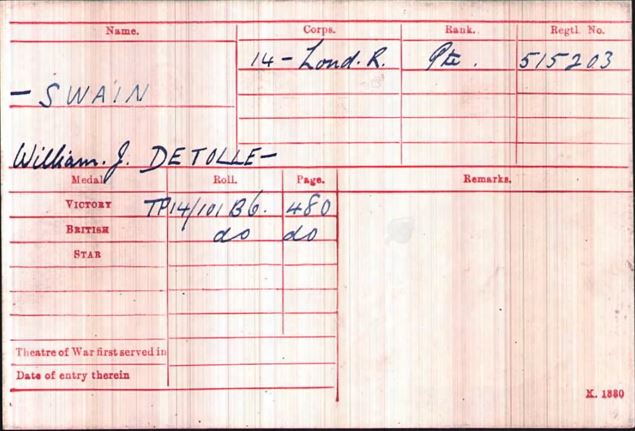 Name. Corps. Rank. Regtl. No.
14 - Lond. R. Pte. 515203
- SWAIN
William. J. DETOLLE -
Medal Roll. Page. Remarks.
VICTORY TP14/101 B6. 480
BRITISH do do
STAR
Theatre of War first served in
Date of entry therein
K. 1380